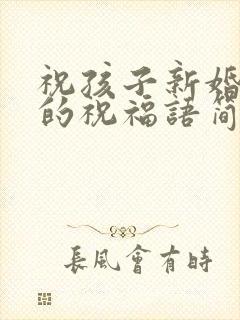 祝孩子新婚
的祝福語簡
長風會有時